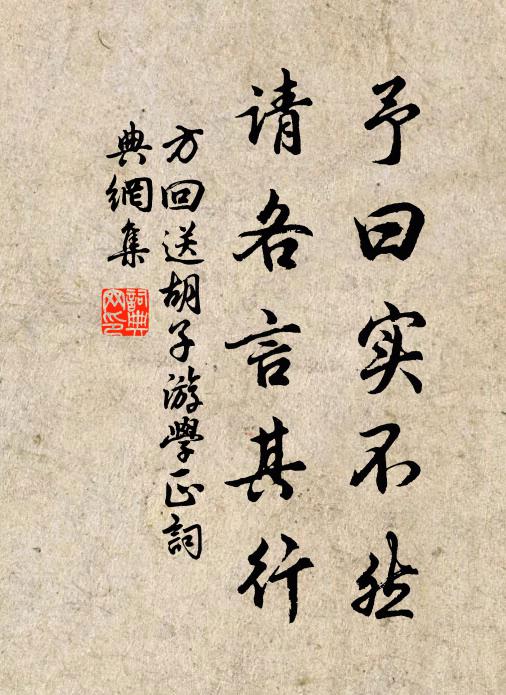 予曰实不然
请各言其行
方回送胡子游学正詞
典網集
詞典网印